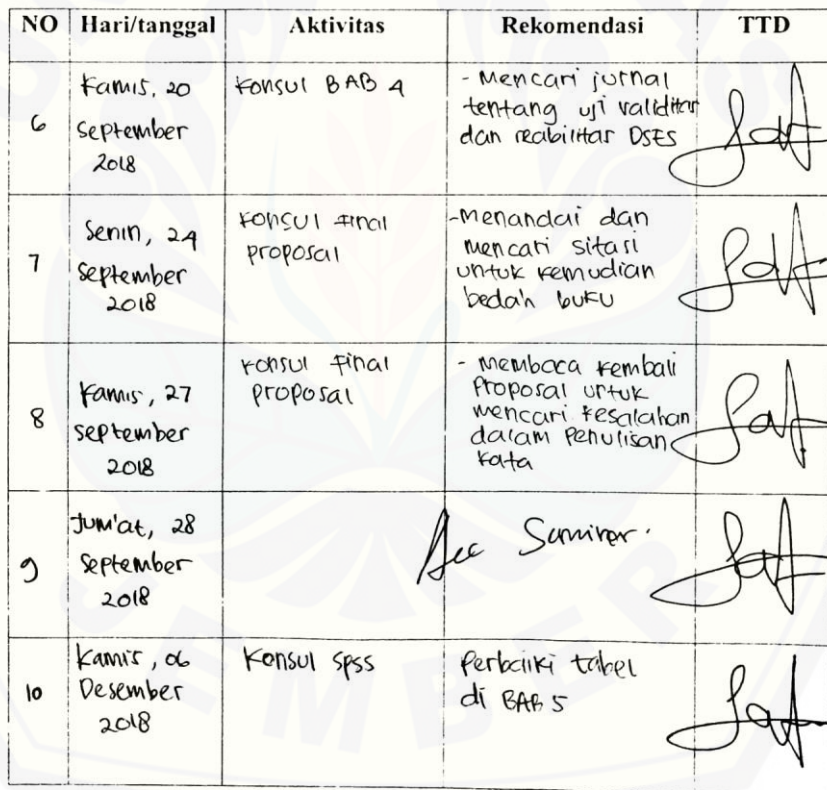 NO Hari/tanggal Aktivitas Rekomendasi TTD
6
Kamis, 20
September
2018
Konsul BAB 4
- Mencari jurnal
tentang uji validitas
dan reabilitas DSES
7
Senin, 24
September
2018
Konsul Final
proposal
- Menandai dan
mencari sitasi
untuk kemudian
bedah buku
8
Kamis, 27
September
2018
Konsul Final
proposal
- Membaca kembali
Proposal untuk
mencari kesalahan
dalam Penulisan
kata
9
Jum'at, 28
September
2018
Acc Seminar.
10
Kamis, 06
Desember
2018
Konsul SPSS
Perbaiki tabel
di BAB 5
EMBER